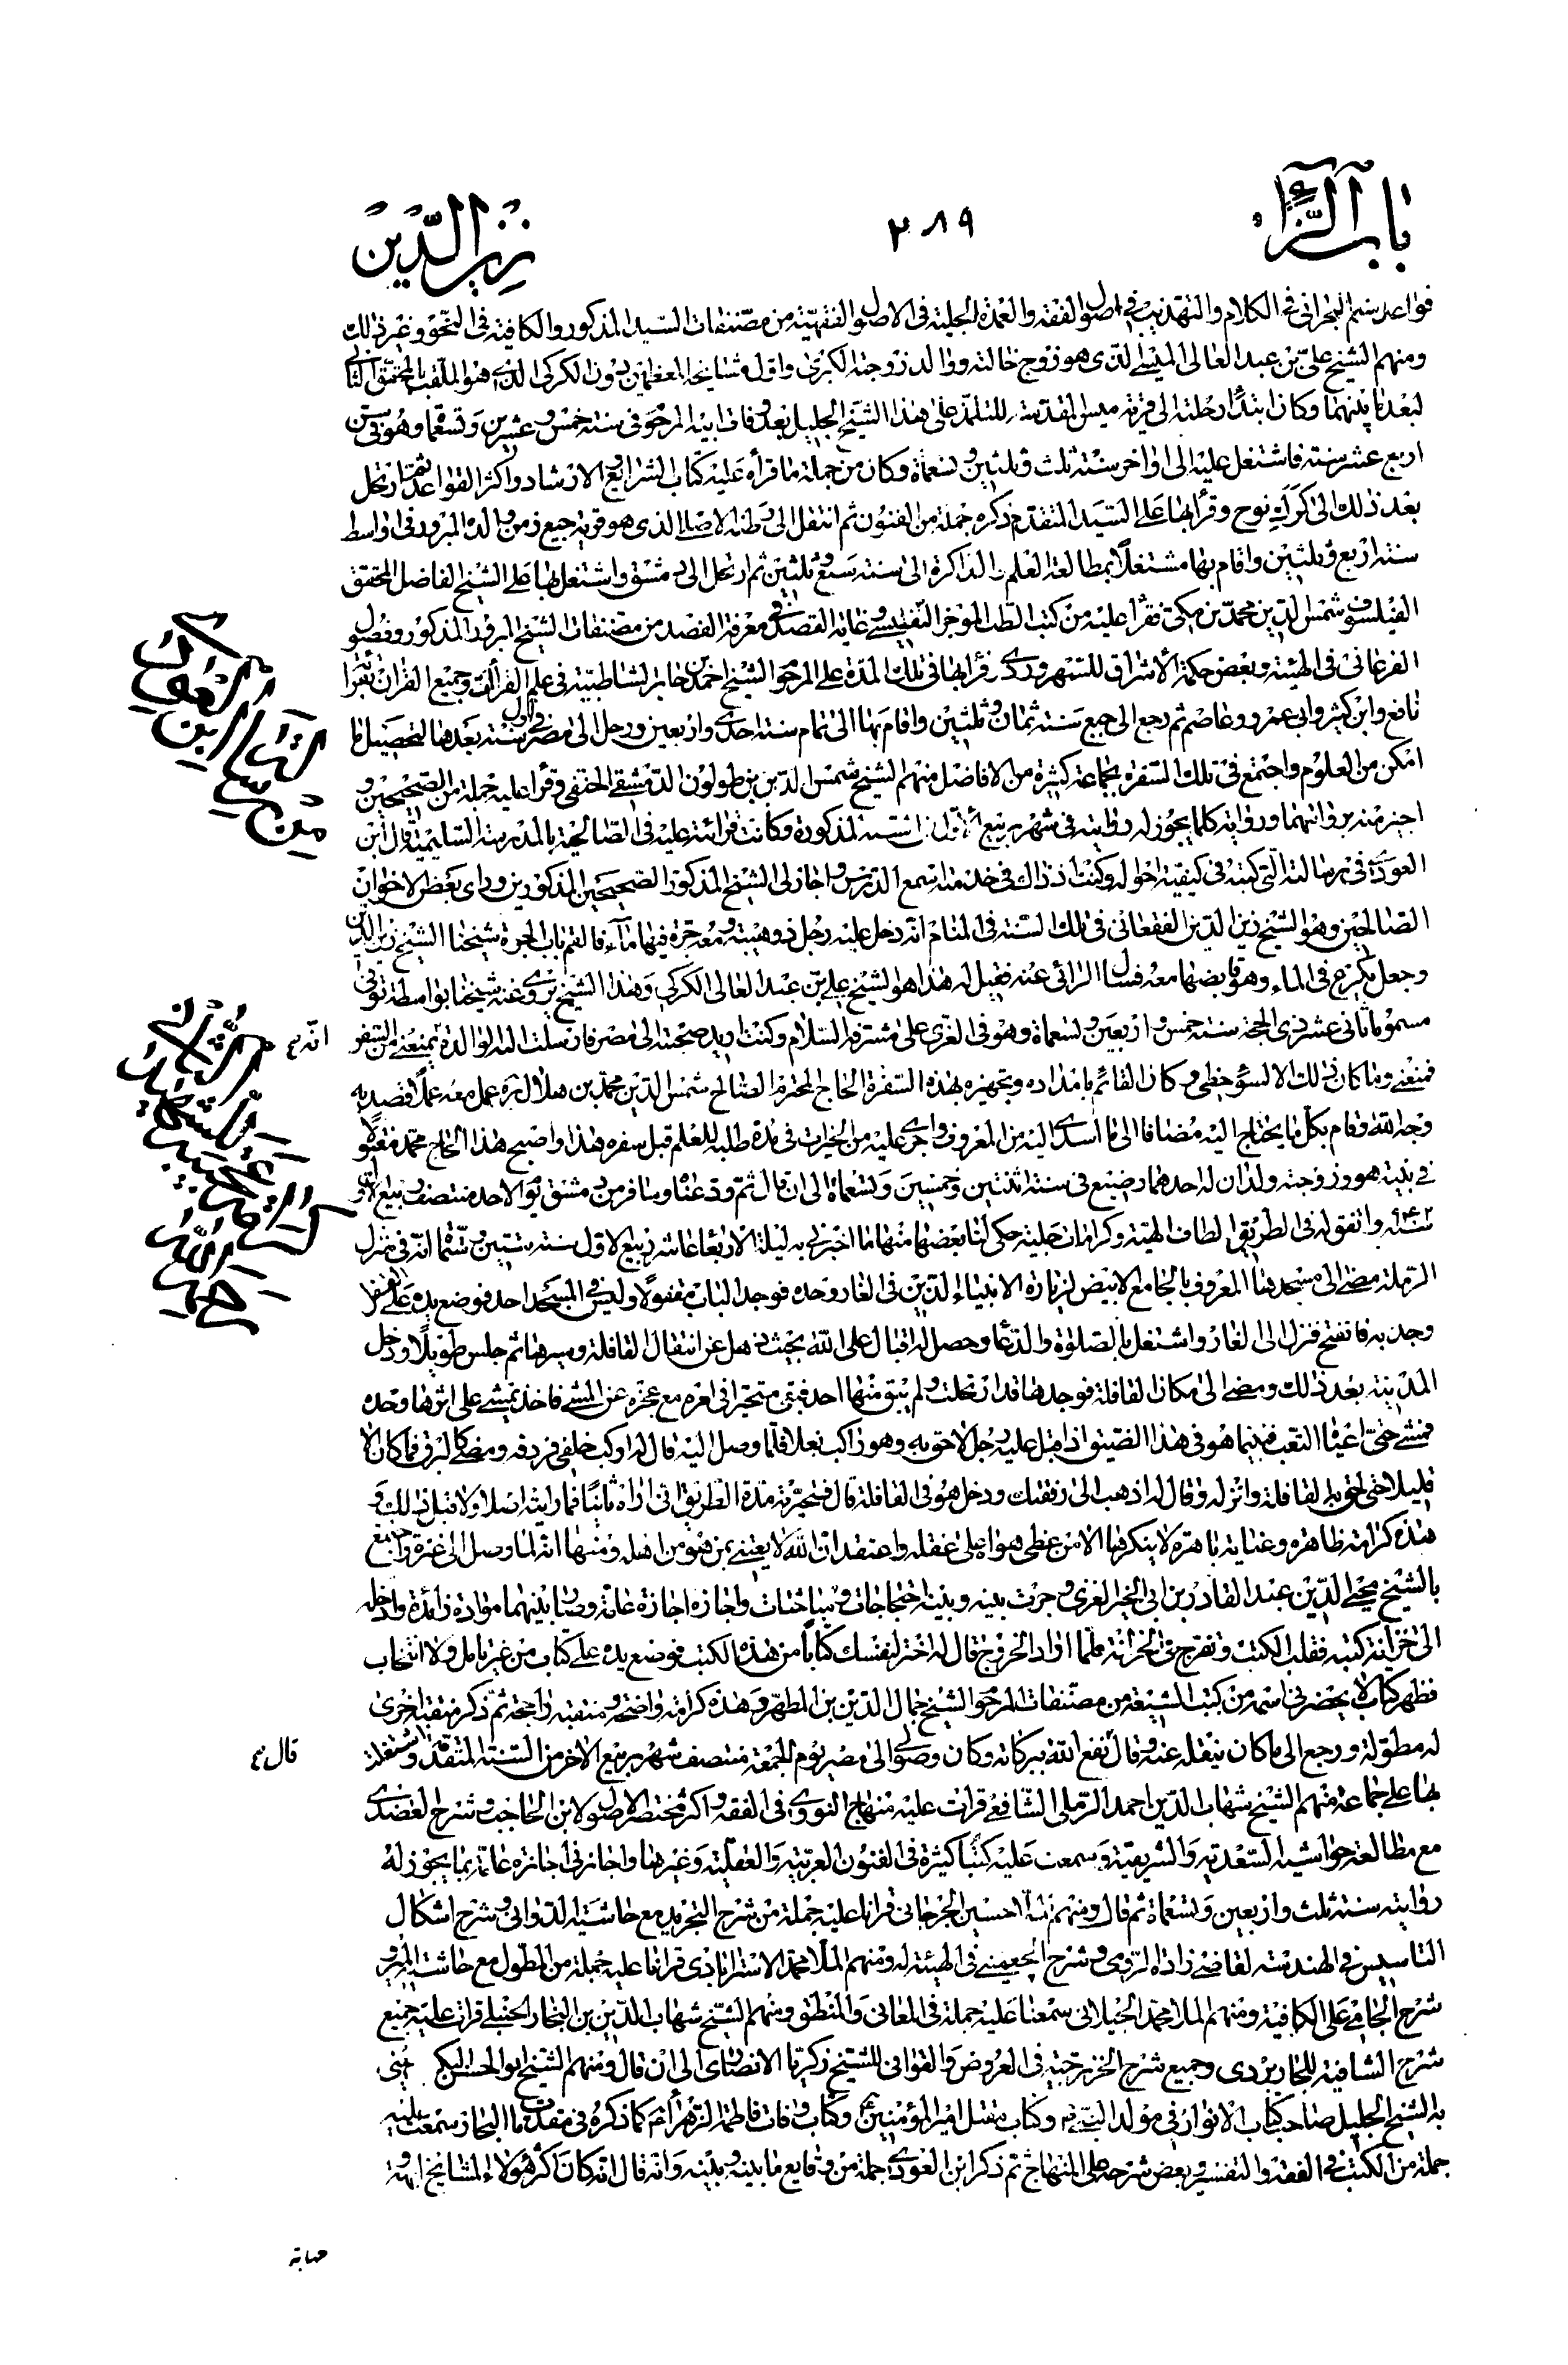 باب الزاء
٢٨٩
زين الدين
قواعد ميثم البحراني في الكلام والتهذيب في اصول الفقه والعمدة الجلية في الاصول الفقهية من مصنفات السيد المذكور والكافية في النحو وغير ذلك
ومنهم الشيخ علي بن عبد العالي الميسي الذي هو زوج خالته ووالد زوجته الكبرى واول مشايخه المعظمين بدون الكركي الذي هو الملقب بالمحقق الثاني
لبعد ما بينهما وكان ابتداء رحلته الى قرية ميس المقدسة للتلمذ على هذا الشيخ الجليل بعد وفات ابيه المرحوم في سنة خمس وعشرين وتسعمائة وهو في سن
اربع عشر سنة فاشتغل عليه الى اواخر سنة ثلث وثلثين وتسعمائة وكان من جملة ما قرأه عليه كتاب الشرايع والارشاد واكثر القواعد ثم ارتحل
بعد ذلك الى كرك نوح وقرأ بها على السيد المتقدم ذكره جملة من الفنون ثم انتقل الى وطنه الاصلي الذي هو قرية جبع زمن والده المبرور في اواسط
سنة اربع وثلثين واقام بها مشتغلا بمطالعة العلم والمذاكرة الى سنة سبع وثلثين ثم ارتحل الى دمشق واشتغل بها على الشيخ الفاضل المحقق
الفيلسوف شمس الدين محمد بن مكي فقرأ عليه من كتب الطب الموجز النفيسي وغاية القصد في معرفة الفصد من مصنفات الشيخ المبرور المذكور وفصول
الفرغاني في الهيئة وبعض حكمة الاشراق للسهروردي وقرأ بها في تلك المدة على المرحوم الشيخ احمد بن جابر الشاطبية في علم القرائة وجميع القران بقراءة
نافع وابن كثير وابي عمرو وعاصم ثم رجع الى جبع سنة ثمان وثلثين واقام بها الى تمام سنة احدى واربعين ورحل الى مصر في اول سنة بعدها لتحصيل ما
امكن من العلوم واجتمع في تلك السفرة بجماعة كثيرة من الافاضل منهم الشيخ شمس الدين بن طولون الدمشقي الحنفي وقرأ عليه جملة من الصحيحين و
اجيز منه بروايتهما ورواية كلما يجوز له روايته في شهر ربيع الاول من السنة المذكورة وكانت قرائته عليه في الصالحية بالمدرسة السليمية قال ابن
العودي في رسالته التي كتبه في كيفية احواله وكنت اذ ذاك في خدمته اسمع الدرس واجاز لي الشيخ المذكور الصحيحين المذكورين وراى بعض الاخوان
الصالحين وهو الشيخ زين الدين الفقعاني في تلك السنة في المنام انه دخل عليه رجل ذو هيبة ومعه جرة فيها ماء فالقم باب الجرة شيخنا الشيخ زين الدين
وجعل يكرع في الماء وهو قابضها معه فسال الرائي عنه فقيل له هذا هو الشيخ علي بن عبد العالي الكركي وهذا الشيخ يروي عنه شيخنا بواسطة توفي
مسموما ثاني عشر ذي الحجة سنة خمس واربعين وتسعمائة وهو في الغري على مشرفه السلام وكنت اريد صحبته الى مصر فارسلت اليه الوالدة بمنعي من السفر
فمنعني وما كان ذلك الا لسوء حظي وكان القائم بامداده وتجهيزه بهذه السفرة الحاج المحترم الصالح شمس الدين محمد بن هلال ره عمل معه عملا قصد به
وجه الله وقام بكل ما يحتاج اليه مضافا الى ما اسدى اليه من المعروف واجرى عليه من الخيرات في مدة طلبه للعلم قبل سفره هذا واصبح هذا الحاج محمد مقتولا
في بيته هو وزوجته وولدان له احدهما رضيع في سنة اثنتين وخمسين وتسعمائة الى ان قال ثم ودعناه وسافر من دمشق يوم الاحد منتصف ربيع الاول
سنة ٩٤٢ واتفق له في الطريق الطاف الهية وكرامات جلية حكى لنا بعضها منها ما اخبرني به ليلة الاربعاء عاشر ربيع الاول سنة ستين وتسعمائة انه في منزل
الرملة مضى الى مسجدها المعروف بالجامع الابيض لزيارة الانبياء الذين في الغار وحده فوجد الباب مقفولا وليس في المسجد احد فوضع يده على القفل
وجذبه فانفتح فنزل الى الغار واشتغل بالصلوة والدعاء وحصل له اقبال على الله بحيث ذهل عن انتقال القافلة وسيرها ثم جلس طويلا ودخل
المدينة بعد ذلك ومضى الى مكان القافلة فوجدها قد ارتحلت ولم يبق منها احد فبقي متحيرا في امره مع عجزه عن المشي فاخذ يمشي على اثرها وحده
فمشى حتى اعياه التعب فبينما هو في هذا الضيق اذ اقبل عليه رجل لاحق به وهو راكب بغلا فلما وصل اليه قال له اركب خلفي فردفه ومضى كالبرق فما كان الا
قليلا حتى لحق به القافلة وانزله وقال له اذهب الى رفقتك ودخل هو في القافلة قال فتحريته مدة الطريق اني اراه ثانيا فما رايته اصلا ولا قبل ذلك و
هذه كرامة ظاهرة وعناية باهرة لا ينكرها الا من غطى هواه على عقله واعتقد ان الله لا يعتني بمن هو من اهله ومنها انه لما وصل الى غزة واجتمع
بالشيخ محيي الدين عبد القادر بن ابي الخير الغزي وجرت بينه وبينه احتجاجات ومباحثات واجازه اجازة عامة وصار بينهما مودة زائدة وادخله
الى خزانة كتبه فقلب الكتب وتفرج في الخزانة فلما اراد الخروج قال له اختر لنفسك كتابا من هذه الكتب فوضع يده على كتاب من غير تامل ولا انتخاب
فظهر كتاب لا يحضرني اسمه من كتب الشيعة من مصنفات المرحوم الشيخ جمال الدين بن المطهر وهذه كرامة واضحة ومنقبة راجحة ثم ذكر منقبة اخرى
له مطولة ورجع الى ما كان ينقله عنه وقال نفع الله ببركاته وكان وصولي الى مصر يوم الجمعة منتصف شهر ربيع الاخر من السنة المتقدمة واشتغلت
بها على جماعة منهم الشيخ شهاب الدين احمد الرملي الشافعي قرات عليه منهاج النووي في الفقه واكثر مختصر الاصول لابن الحاجب وشرح العضدي
مع مطالعة حواشيه السعدية والشريفية وسمعت عليه كتبا كثيرة في الفنون العربية والعقلية وغيرها واجازني اجازة عامة بما يجوز له
روايته سنة ثلث واربعين وتسعمائة ثم قال ومنهم الملا حسين الجرجاني قرانا عليه جملة من شرح التجريد مع حاشية الدواني وشرح اشكال
التاسيس في الهندسة لقاضي زاده الرومي وشرح الچغميني في الهيئة له ومنهم الملا محمد الاسترابادي قرانا عليه جملة من المطول مع حاشية المير و
شرح الجامي على الكافية ومنهم الملا محمد الجيلاني سمعنا عليه جملة في المعاني والمنطق ومنهم الشيخ شهاب الدين بن النجار الحنبلي قرات عليه جميع
شرح الشافية للجاربردي وجميع شرح الخزرجية في العروض والقوافي للشيخ زكريا الانصاري الى ان قال ومنهم الشيخ ابو الحسن البكري
به الشيخ الجليل صاحب كتاب الانوار في مولد النبي ص وكتاب مقتل امير المؤمنين ع وكتاب وفات فاطمة الزهراء ع كما ذكره في مقدمات البحار سمعت عليه
جملة من الكتب في الفقه والتفسير وبعض شرحه على المنهاج ثم ذكر ابن العودي جملة من وقايع ما بينه وبينه وانه قال انه كان اكثر هؤلاء المشايخ ابهة و
انه م
قال م
مهابة